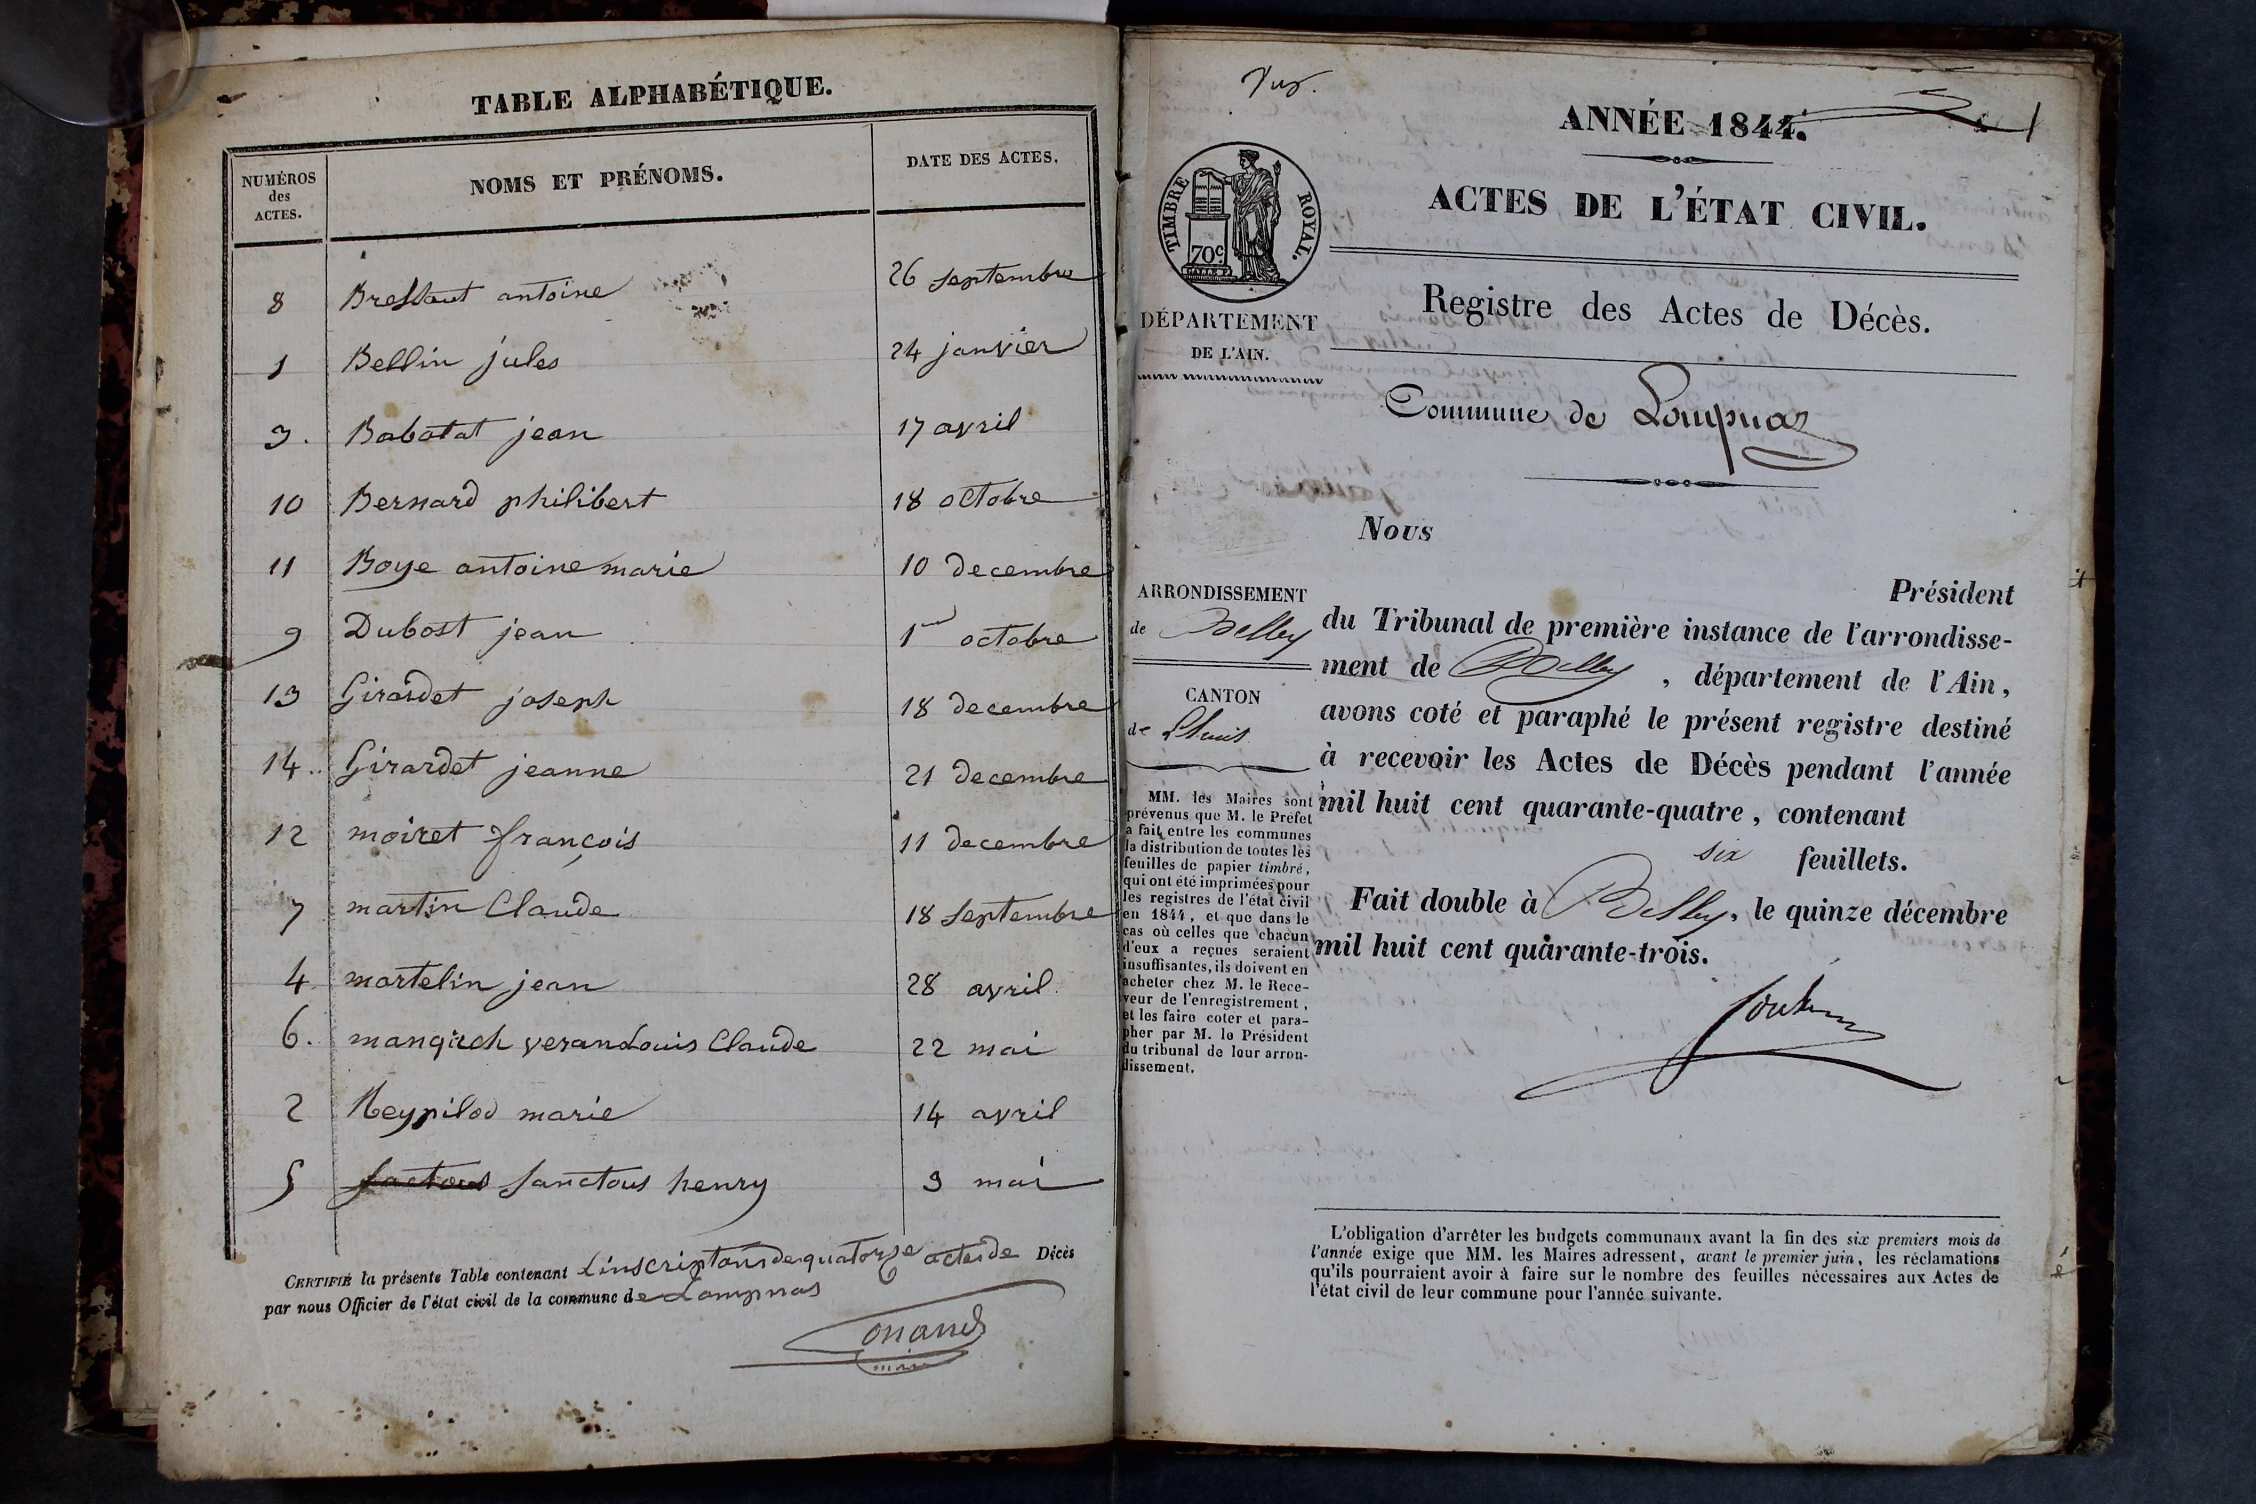 TABLE ALPHABÉTIQUE.
NUMÉROS
des
ACTES.
NOMS ET PRÉNOMS.
DATE DES ACTES.
8 Bressaut antoine 26 septembre
1 Bellin jules 24 janvier
3. Babolat jean 17 avril
10 Bernard philibert 18 octobre
11 Boye antoine marie 10 decembre
9 Dubost jean 1er octobre
13 Girardet joseph 18 decembre
14.. Girardet jeanne 21 decembre
12 moiret françois 11 decembre
7 martin Claude 18 septembre
4 martelin jean 28 avril
6. veran Louis Claude 22 mai
2 Reypilod marie 14 avril
5 Sanctous henry 3 mai
CERTIFIÉ la présente Table contenant de quatorze actes de Décès
par nous Officier de l'état civil de la commune de Lompnas
Conand
maire
ANNÉE 1844.
1
ACTES DE L'ÉTAT CIVIL.
TIMBRE ROYAL.
70c.
Registre des Actes de Décès.
DÉPARTEMENT
DE L'AIN.
Commune de Lompnaz
Nous
Président
ARRONDISSEMENT
de Belley
CANTON
de Lhuis
du Tribunal de première instance de l'arrondisse-
ment de Belley, département de l'Ain,
avons coté et paraphé le présent registre destiné
à recevoir les Actes de Décès pendant l'année
mil huit cent quarante-quatre, contenant
six feuillets.
Fait double à Belley, le quinze décembre
mil huit cent quarante-trois.
MM. les Maires sont
prévenus que M. le Préfet
a fait entre les communes
la distribution de toutes les
feuilles de papier timbré,
qui ont été imprimées pour
les registres de l'état civil
en 1844, et que dans le
cas où celles que chacun
d'eux a reçues seraient
insuffisantes, ils doivent en
acheter chez M. le Rece-
veur de l'enregistrement,
et les faire coter et para-
pher par M. le Président
du tribunal de leur arron-
dissement.
L'obligation d'arrêter les budgets communaux avant la fin des six premiers mois de
l'année exige que MM. les Maires adressent, avant le premier juin, les réclamations
qu'ils pourraient avoir à faire sur le nombre des feuilles nécessaires aux Actes de
l'état civil de leur commune pour l'année suivante.